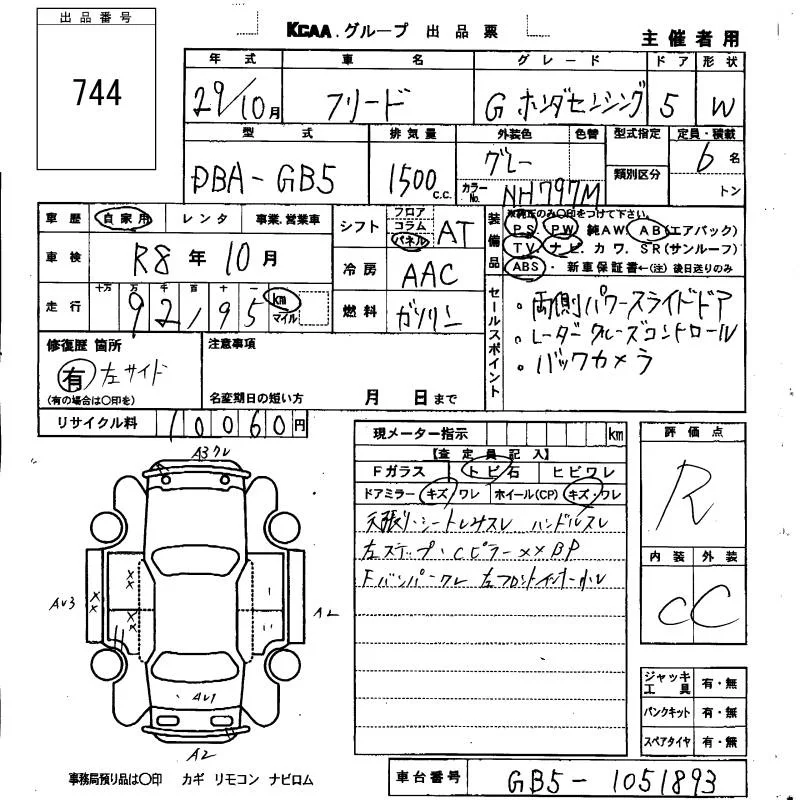 出品番号
744
KCAA.グループ 出品票
主催者用
年式 車名 グレード ドア 形状
29/10月 フリード G ホンダセンシング 5 W
型式 排気量 外装色 色替 型式指定 定員・積載
DBA-GB5 1500c.c. グレー カラーNo. NH797M 類別区分 6名 トン
車歴 自家用 レンタ 事業.営業車
シフト フロア コラム パネル AT
車検 R8年10月
冷房 AAC
走行 十万 万 千 百 十 一
92,195 km マイル
燃料 ガソリン
装備品 ※純正のみ○印をつけて下さい。
PS. PW 純AW. AB(エアバック)
TV. ナビ. カワ. SR(サンルーフ)
ABS・新車保証書←(注)後日送りのみ
セールスポイント
・両側パワースライドドア
・レーダークルーズコントロール
・バックカメラ
修復歴 箇所
有 左サイド
(有の場合は○印を)
注意事項
名変期日の短い方 月 日まで
リサイクル料 10060円
現メーター指示 km
【査定員記入】
Fガラス トビ石 ヒビワレ
ドアミラー キズ/ワレ ホイール(CP) キズ・ワレ
天張り・シートレスレ ハンドルスレ
左ステップ・Cピラー××BP
Fバンパーワレ 左フロントインナー小レ
評価点
R
内装 外装
C C
A3ワレ
AU3
××
××
××
A2
AU1
A2
ジャッキ工具 有・無
パンクキット 有・無
スペアタイヤ 有・無
事務局預り品は○印 カギ リモコン ナビロム
車台番号 GB5-1051893